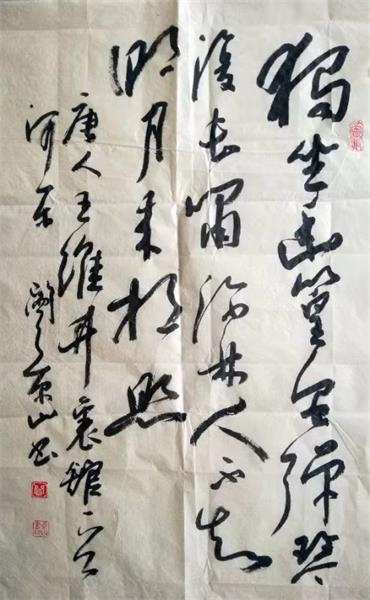 獨坐幽篁里彈琴
復長嘯深林人不知
明月来相照
唐人王維竹裏館一首
山书